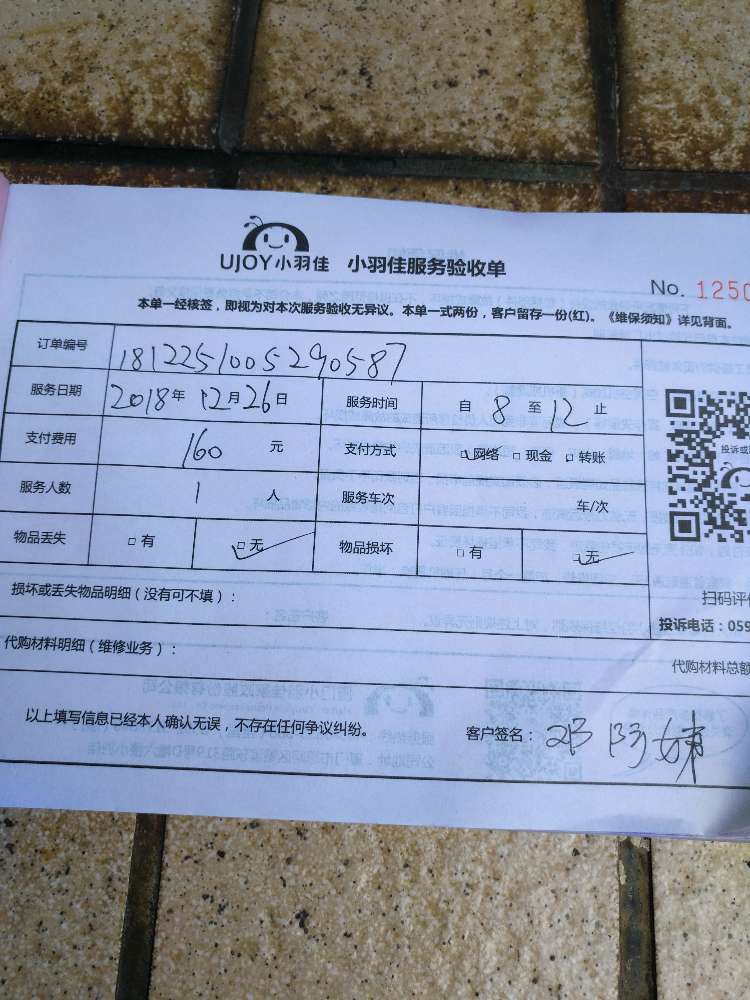 UJOY小羽佳 小羽佳服务验收单
No. 1250
本单一经核签，即视为对本次服务验收无异议。本单一式两份，客户留存一份(红)。《维保须知》详见背面。
订单编号 1812251005290587
服务日期 2018年12月26日 服务时间 自8至12止
支付费用 160 元 支付方式 网络 □现金 □转账
投诉或
服务人数 1 人 服务车次 车/次
物品丢失 □有 □无 物品损坏 □有 □无
损坏或丢失物品明细（没有可不填）：
扫码评价
投诉电话：059
代购材料明细（维修业务）：
代购材料总额
以上填写信息已经本人确认无误，不存在任何争议纠纷。 客户签名：邓阿姨